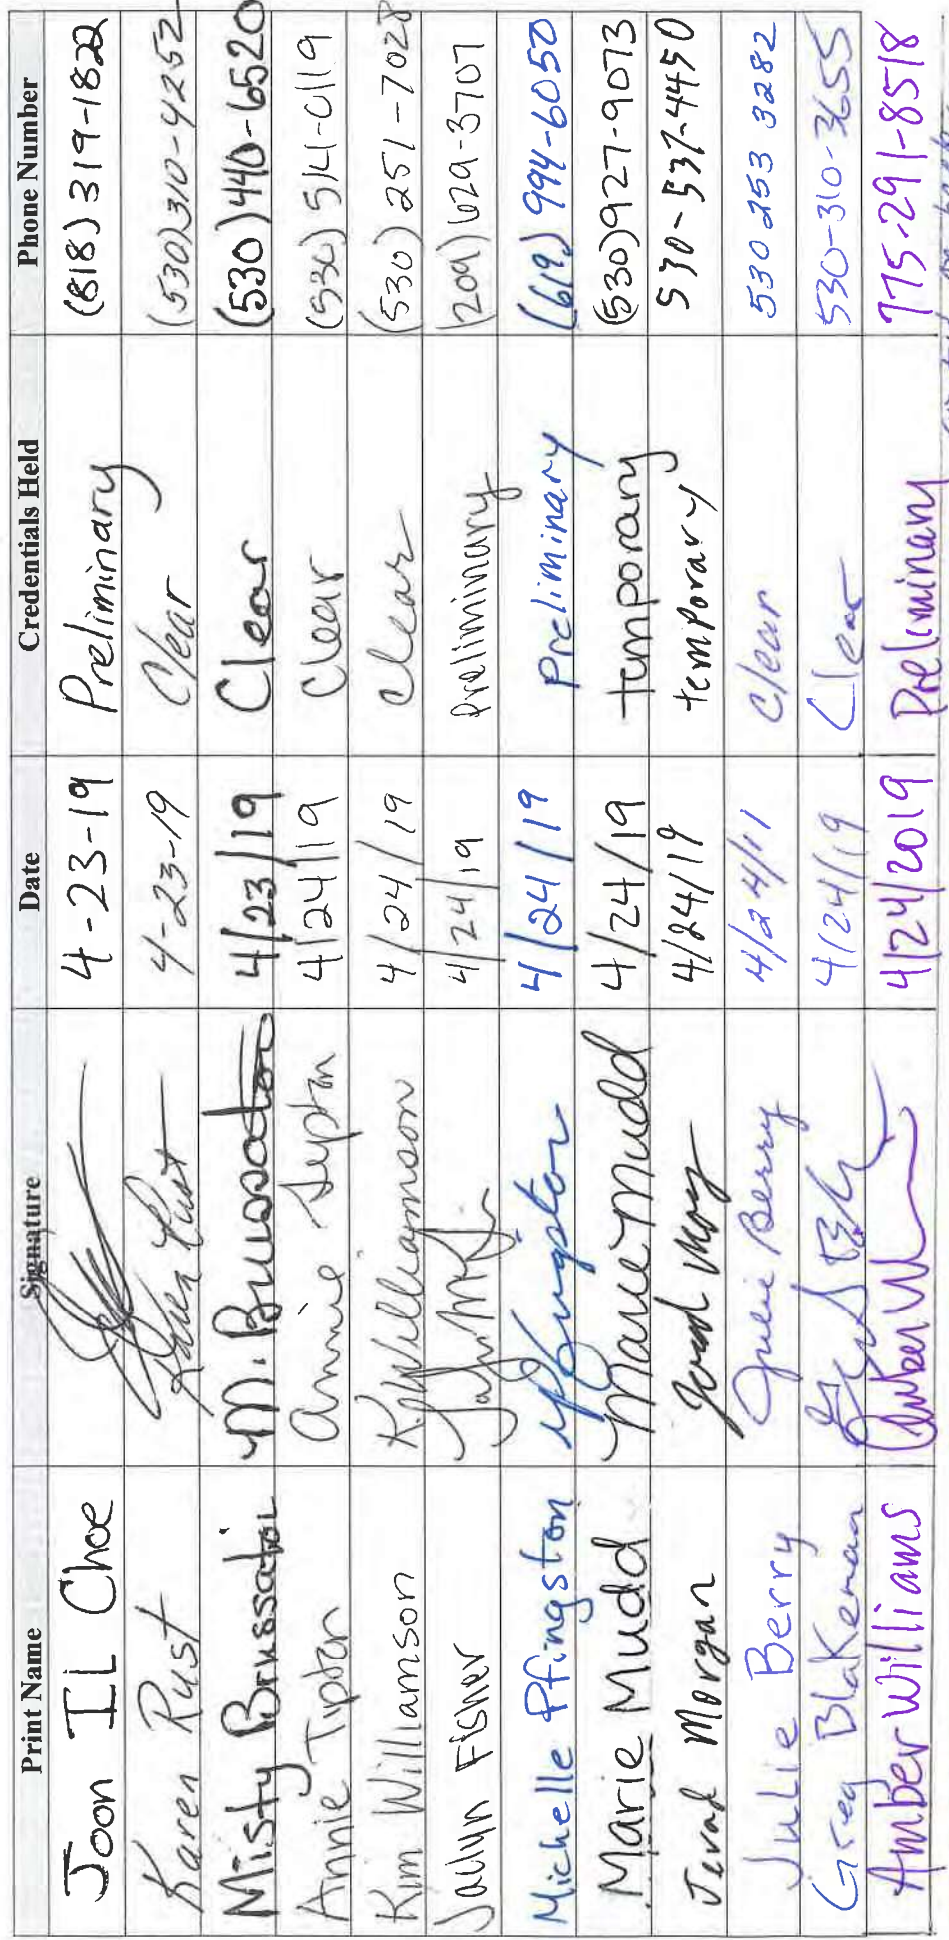 Print Name Signature Date Credentials Held Phone Number
Joon Il Choe 4-23-19 Preliminary (818) 319-1822
Karen Rust Karen Rust 4-23-19 Clear (530)310-4252
Misty Brussatoi M. Brussatoi 4/23/19 Clear (530)440-6520
Annie Tipton Annie Tipton 4/24/19 Clear (530) 514-0119
Kim Williamson K Williamson 4/24/19 Clear (530) 251-7028
Jaclyn Fisher 4/24/19 Preliminary (209) 629-3707
Michelle Pfingston MPfingston 4/24/19 Preliminary (619) 994-6050
Marie Mudd Marie Mudd 4/24/19 temporary (530)927-9073
Jerad Morgan 4/24/19 temporary 530-537-4450
Julie Berry Julie Berry 4/24/19 Clear 530 253 3282
Greg Blakeman 4/24/19 Clear 530-310-3655
Amber Williams 4/24/2019 Preliminary 775-291-8518